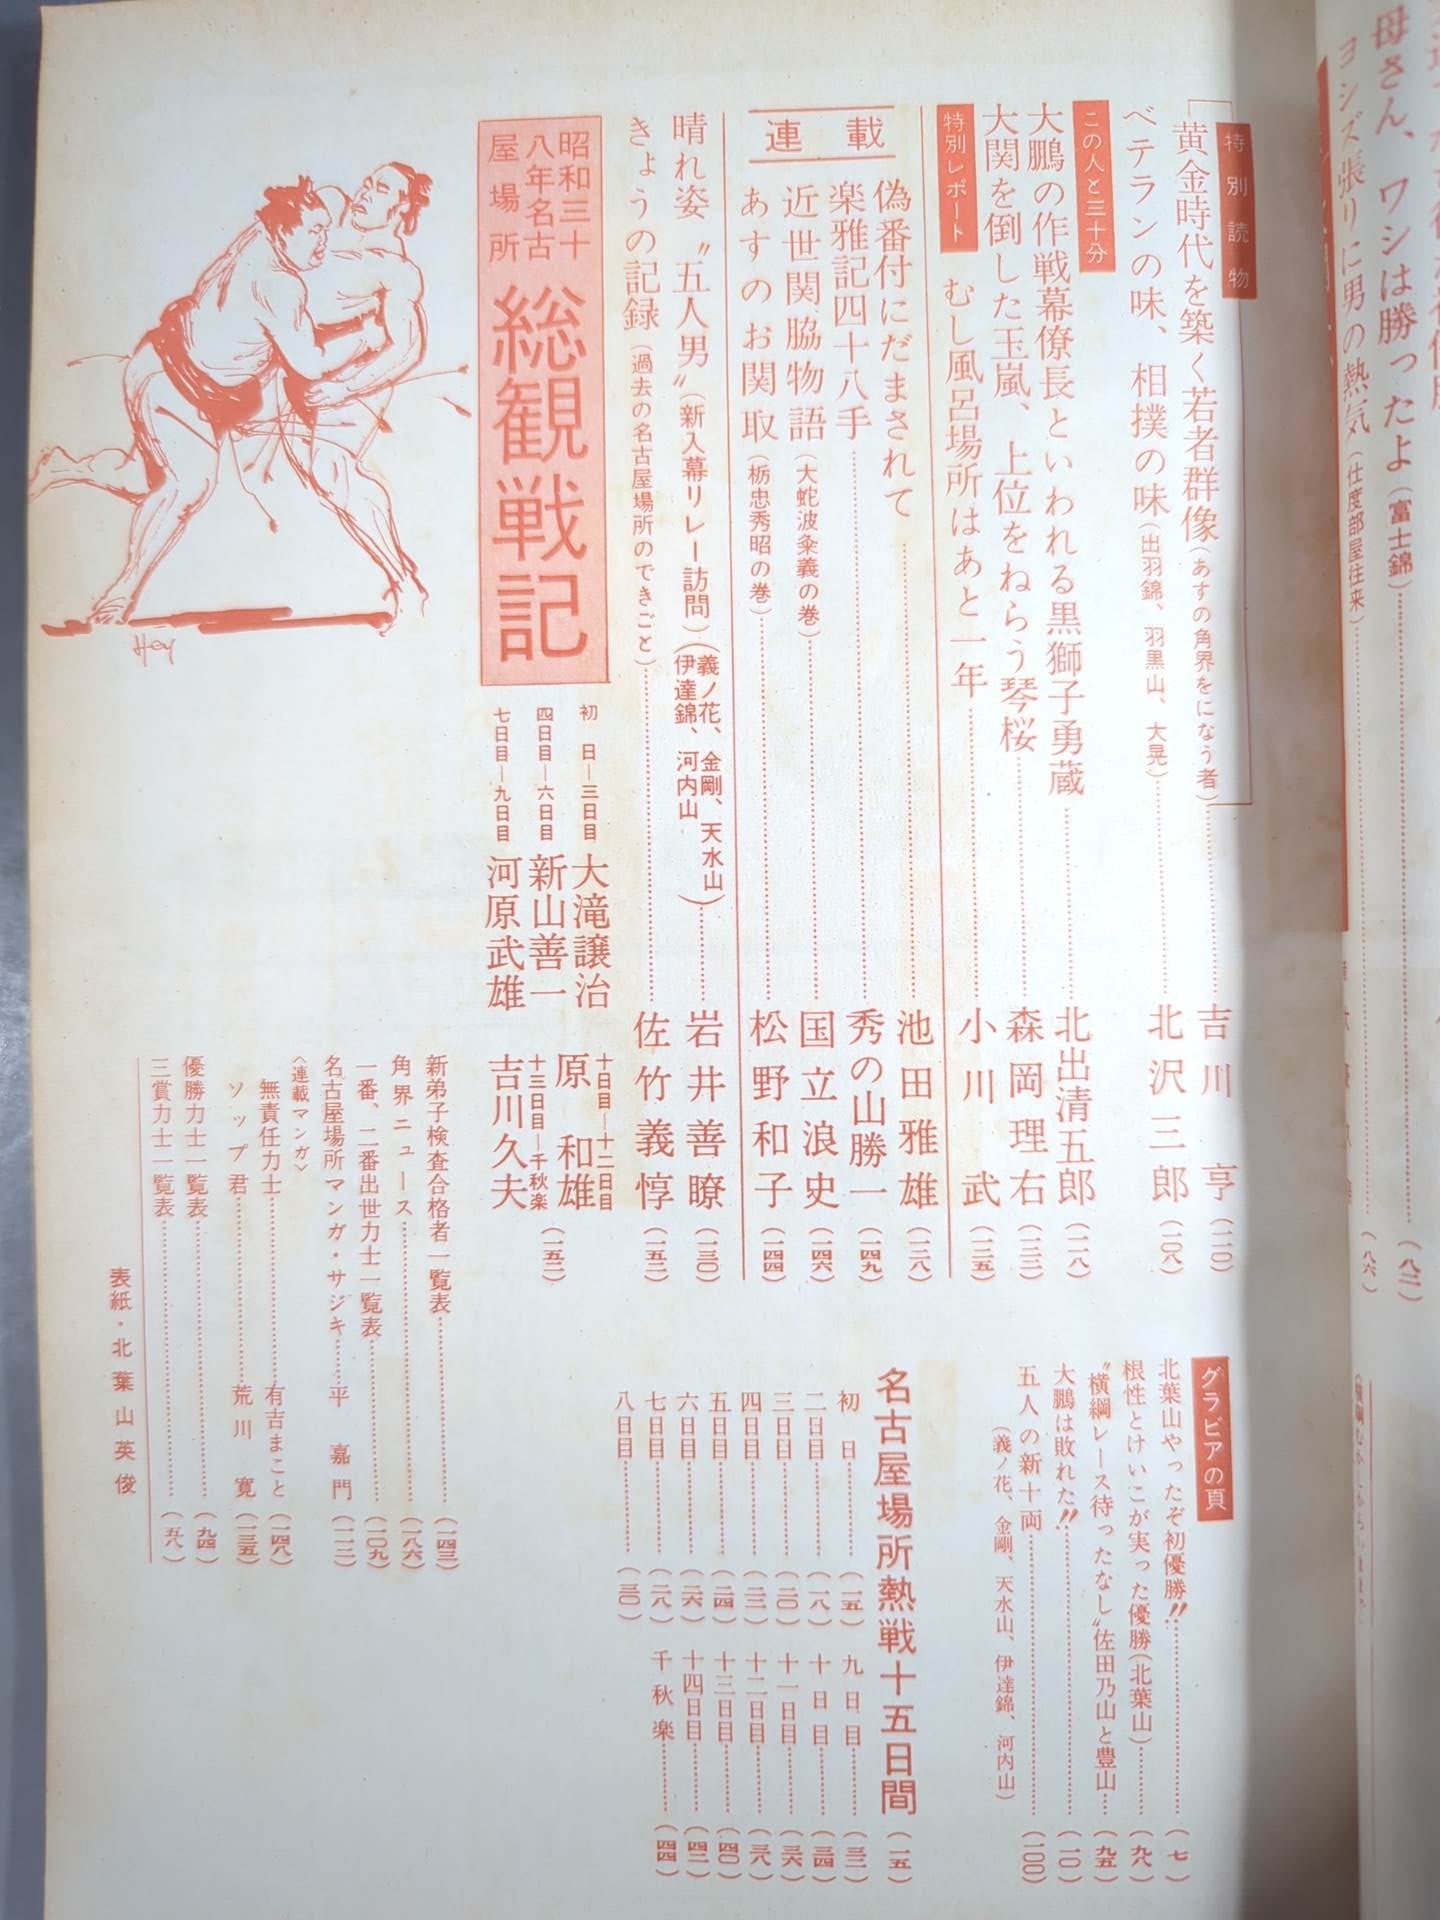 母さん、ワシは勝ったよ(富士錦)………(八二)
ヨシズ張りに男の熱気(仕度部屋往来)………(八六)
特別読物
黄金時代を築く若者群像(あすの角界をになう者)………吉川亨(一一〇)
ベテランの味、相撲の味(出羽錦、羽黒山、大晃)………北沢三郎(一〇八)
この人と三十分
大鵬の作戦幕僚長といわれる黒獅子勇蔵………北出清五郎(一一八)
大関を倒した玉嵐、上位をねらう琴桜………森岡理右(一三三)
特別レポート
むし風呂場所はあと一年………小川武(一二五)
連載
偽番付にだまされて………池田雅雄(一二八)
楽雅記四十八手………秀の山勝一(一四九)
近世関脇物語(大蛇波粂義の巻)………国立浪史(一四六)
あすのお関取(栃忠秀昭の巻)………松野和子(一四四)
晴れ姿〝五人男〟(新入幕リレー訪問)(義ノ花、金剛、天水山、伊達錦、河内山)………岩井善瞭(一三〇)
きょうの記録(過去の名古屋場所のできごと)………佐竹義惇(一五二)
昭和三十八年名古屋場所
総観戦記
初日―三日目 大滝譲治
四日目―六日目 新山善一
七日目―九日目 河原武雄
十日目―十二日目 原和雄
十三日目―千秋楽 吉川久夫
(一五二)
Hoy
新弟子検査合格者一覧表………(一四三)
角界ニュース………(一八六)
一番、二番出世力士一覧表………(一〇九)
名古屋場所マンガ・サジキ………平嘉門(一一二)
〈連載マンガ〉
無責任力士………有吉まこと(一四八)
ソップ君………荒川寛(一三五)
優勝力士一覧表………(九四)
三賞力士一覧表………(五八)
表紙・北葉山英俊
グラビアの頁
北葉山やったぞ初優勝!!………(七)
根性とけいこが実った優勝(北葉山)………(九八)
〝横綱レース待ったなし〟佐田乃山と豊山…(九五)
大鵬は敗れた!!………(一〇)
五人の新十両………(一〇〇)
(義ノ花、金剛、天水山、伊達錦、河内山)
名古屋場所熱戦十五日間(一五)
初日………(一五)
二日目………(一八)
三日目………(二〇)
四日目………(二二)
五日目………(二四)
六日目………(二六)
七日目………(二八)
八日目………(三〇)
九日目………(三二)
十日目………(三四)
十一日目………(三六)
十二日目………(三八)
十三日目………(四〇)
十四日目………(四二)
千秋楽………(四四)